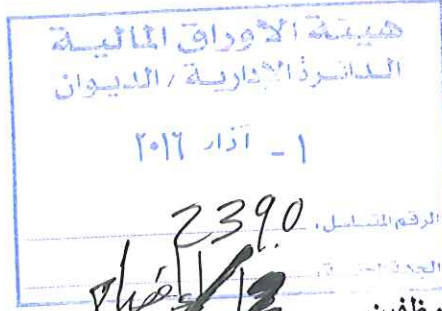 هيئة الأوراق المالية
الدائرة الإدارية / الديوان
١ - آذار ٢٠١٦
الرقم المتسلسل: 2390
الجهة المختصة: